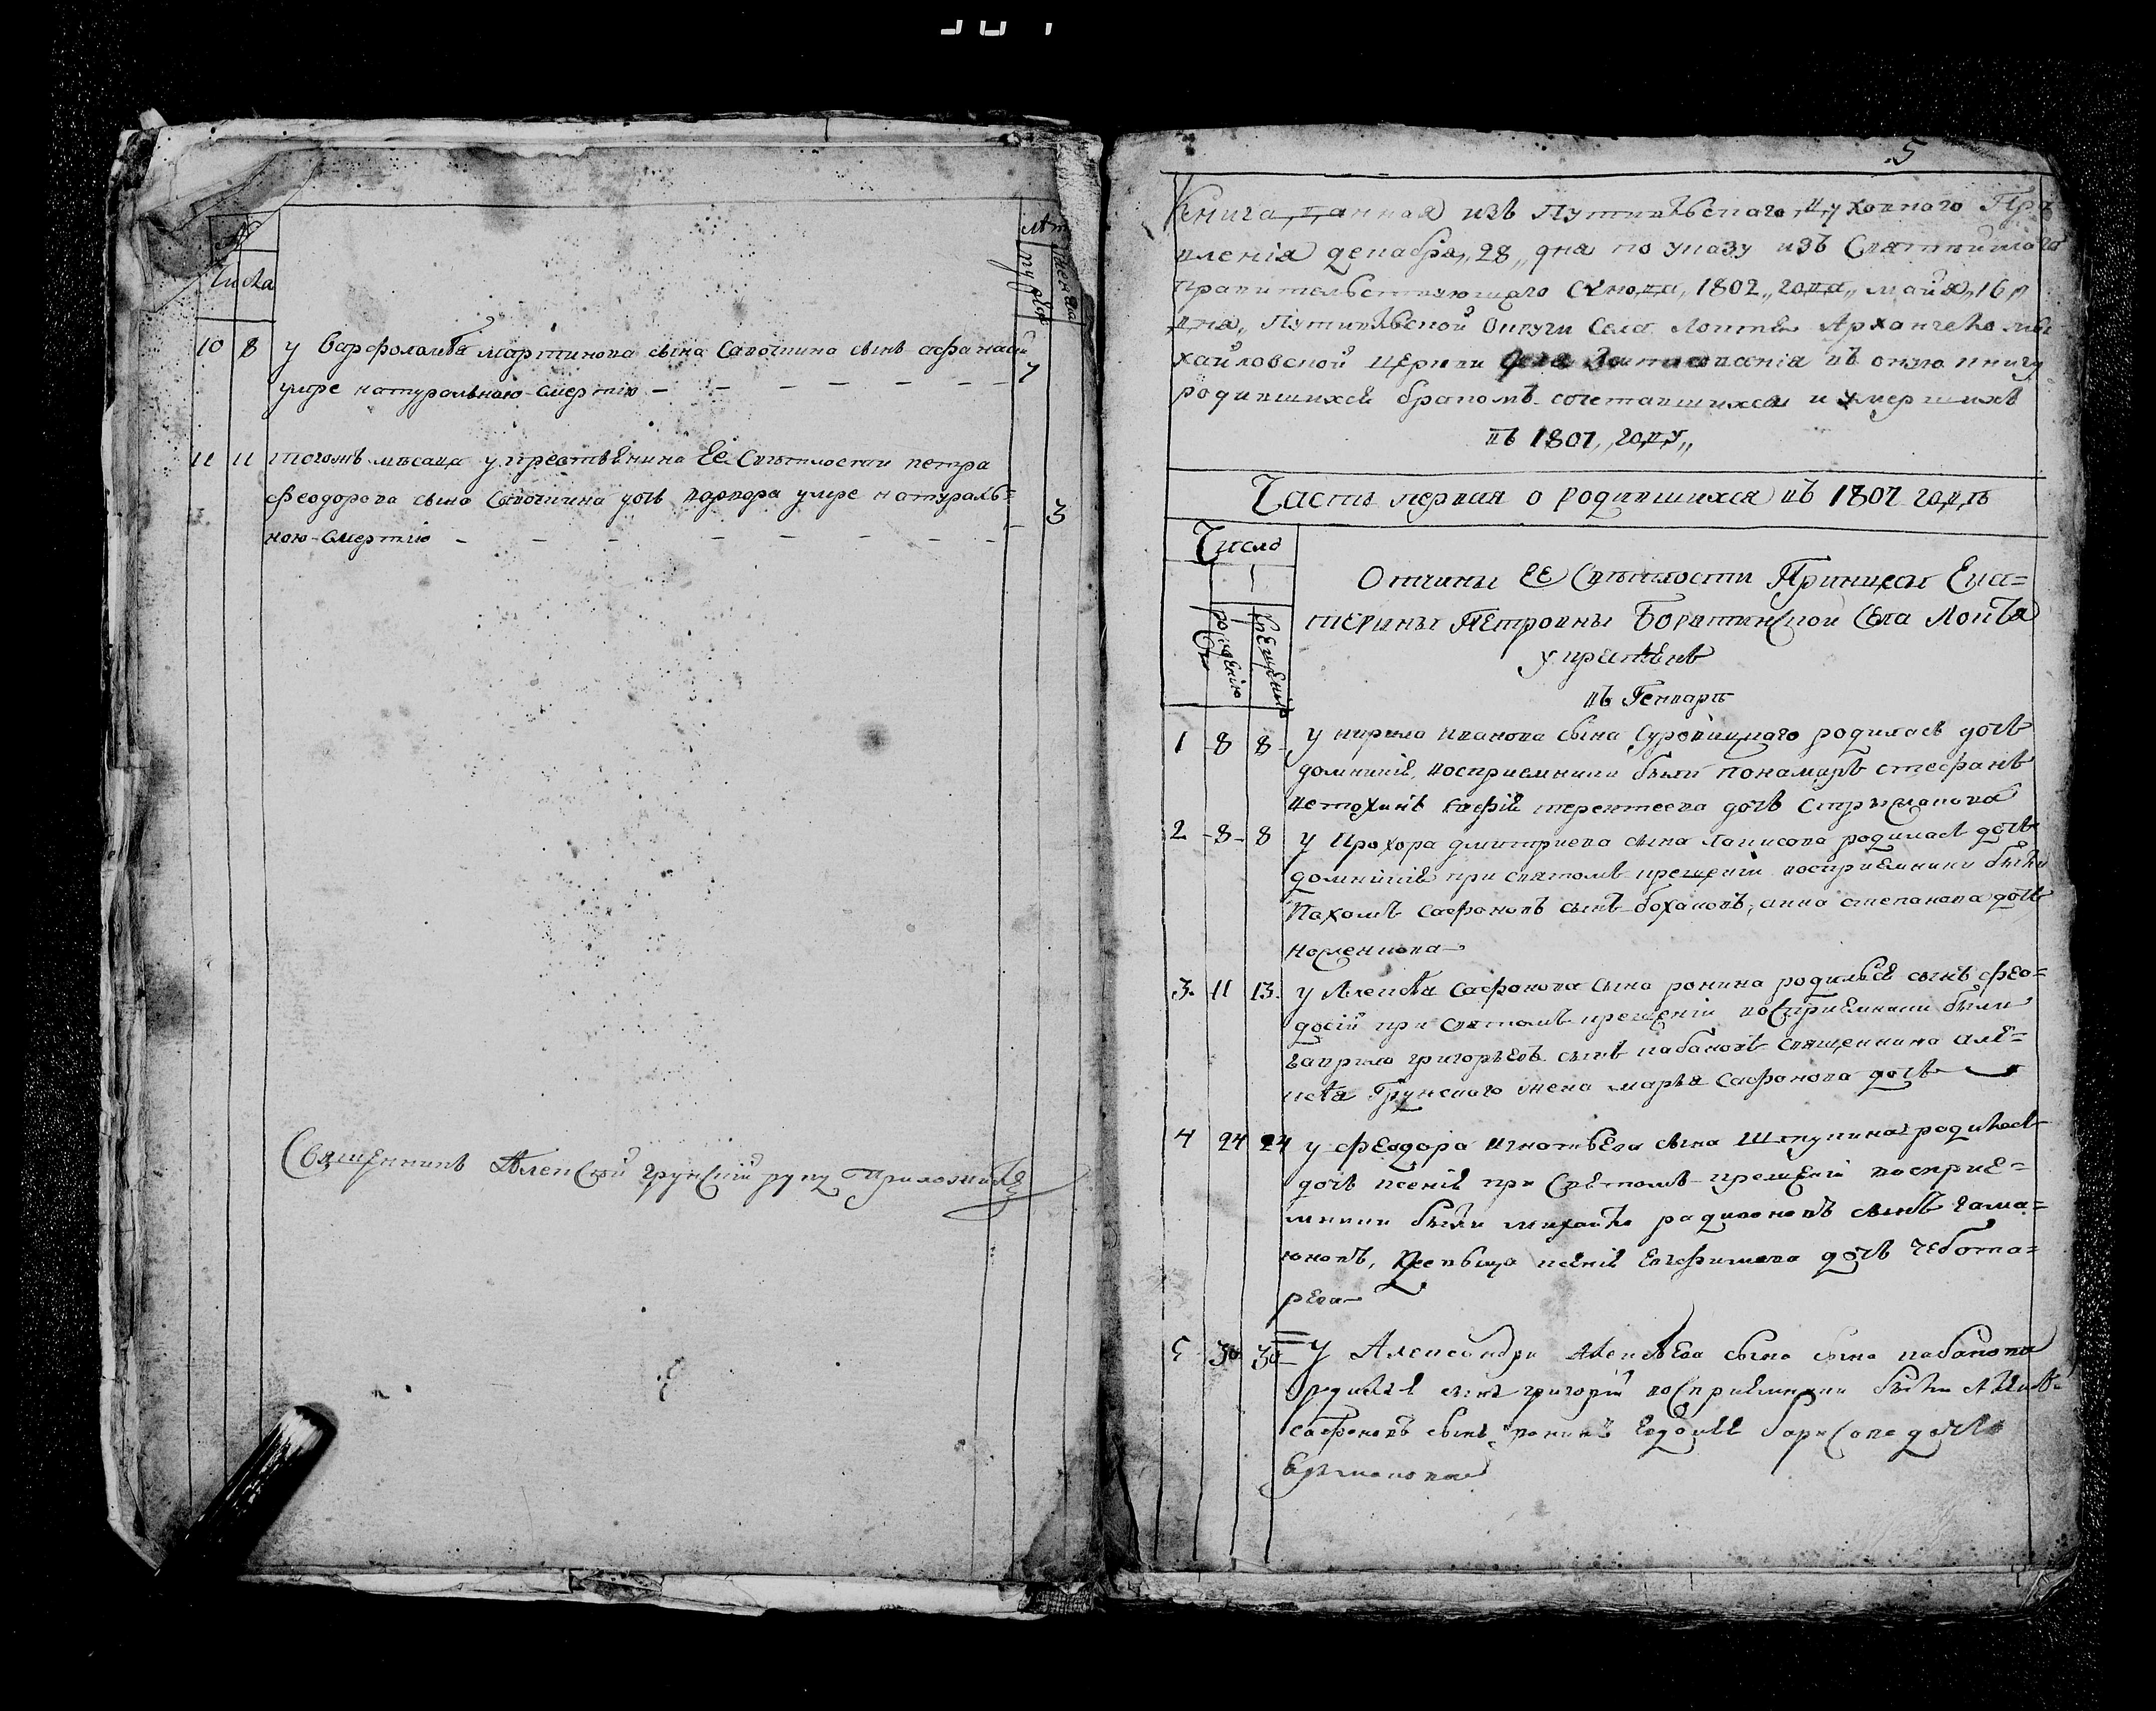 №
Числа
Лѣт
муж
женска
10 8 у Варфоломѣа мартинова сына Савошина сынъ афанасій
умре натуральною смертію 7
11 11 тогожъ мѣсаца у крестьянина Ее Свѣтлости петра
Феодорова сына Савошина дочь варвара умре натураль=
ною смертію 3
Священникъ Алексѣй грунскій руку Приложилъ
5
Книга данная изъ Путивльскаго духовнаго Пра
вленія декабря 28 дня по указу изъ Святѣйшаго
правительствующаго Сѵнода 1802 года майя 16
дня Путивльской Округи Села Локтя Архангело ми
хайловской Церкви для Записанія въ оную книгу
родившихся бракомъ сочетавшихся и умершихъ
въ 1807 году
Часть первая о родившихся въ 1807 годѣ
Число
рожденію
крещенію
Отчины ЕЕ Свѣтлости Принцеси Ека=
терины Петровны Борятинской Села Локтя
у крестьянъ
въ Генварѣ
1 8 8 у кирила иванова сына родилась дочь
домникія воспріемники были пономарь стефанъ
терентеева дочь
2 8 8 у Прохора дмитриева сына родилась дочь
домникія при святомъ крещеніи воспріемники были
Пахомъ сафоновъ сынъ анна степанова дочь
3. 11 13. у Алексѣя Сафонова сына ронина родился сынъ фео=
досій при святомъ крещеніи воспріемники были
гаврило григорьевъ сынъ кабановъ священника але=
ксѣя Грунскаго жена марья Сафонова дочь
4 24 24 у феодора игнатьева сына Шкупина родилась
дочь ксенія при Святомъ крещеніи воспріе=
мники были михайло радионовъ сынъ гама=
юновъ, ксенія Евфимова дочь чебота=
рева
5 30 30 У Александра Алексѣева сына сына кабанова
родился сынъ григорій воспріемники были Алексѣй
сафоновъ сынъ ронинъ борисова дочь